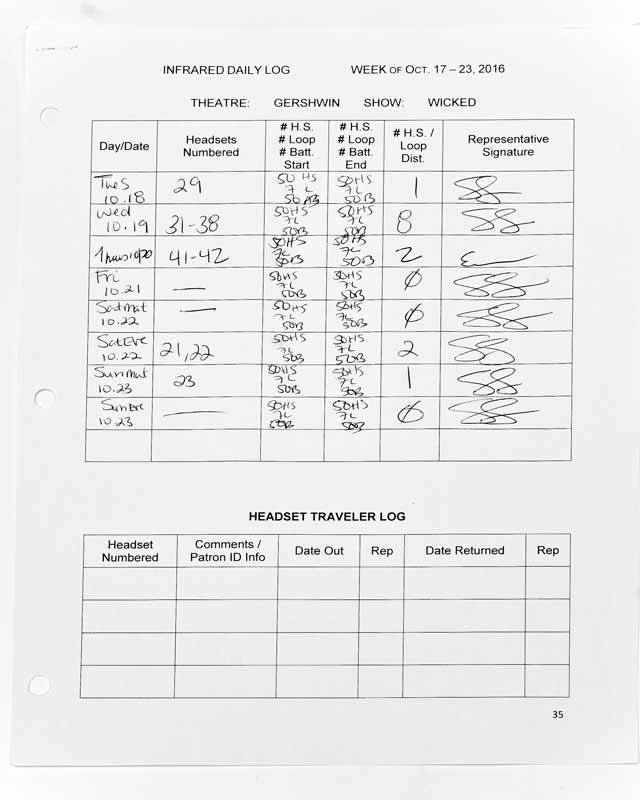 INFRARED DAILY LOG WEEK OF OCT. 17 – 23, 2016
THEATRE: GERSHWIN SHOW: WICKED
Day/Date
Headsets
Numbered
# H.S.
# Loop
# Batt.
Start
# H.S.
# Loop
# Batt.
End
# H.S. /
Loop
Dist.
Representative
Signature
Tues
10.18
29
50 HS
7 L
50 AB
50HS
7L
50B
1
Wed
10.19
31-38
50HS
7L
50B
50HS
7L
50B
8
Thurs 10/20
41-42
50HS
7L
50B
50HS
7L
50B
2
Fri
10.21
—
50HS
7L
50B
50HS
7L
50B
Ø
Sat Mat
10.22
—
50HS
7L
50B
50HS
7L
50B
Ø
Sat Eve
10.22
21,22
50HS
7L
50B
50HS
7L
50B
2
Sun Mat
10.23
23
50HS
7L
50B
50HS
7L
50B
1
Sun Eve
10.23
—
50HS
7L
50B
50HS
7L
50B
Ø
HEADSET TRAVELER LOG
Headset
Numbered
Comments /
Patron ID Info
Date Out
Rep
Date Returned
Rep
35